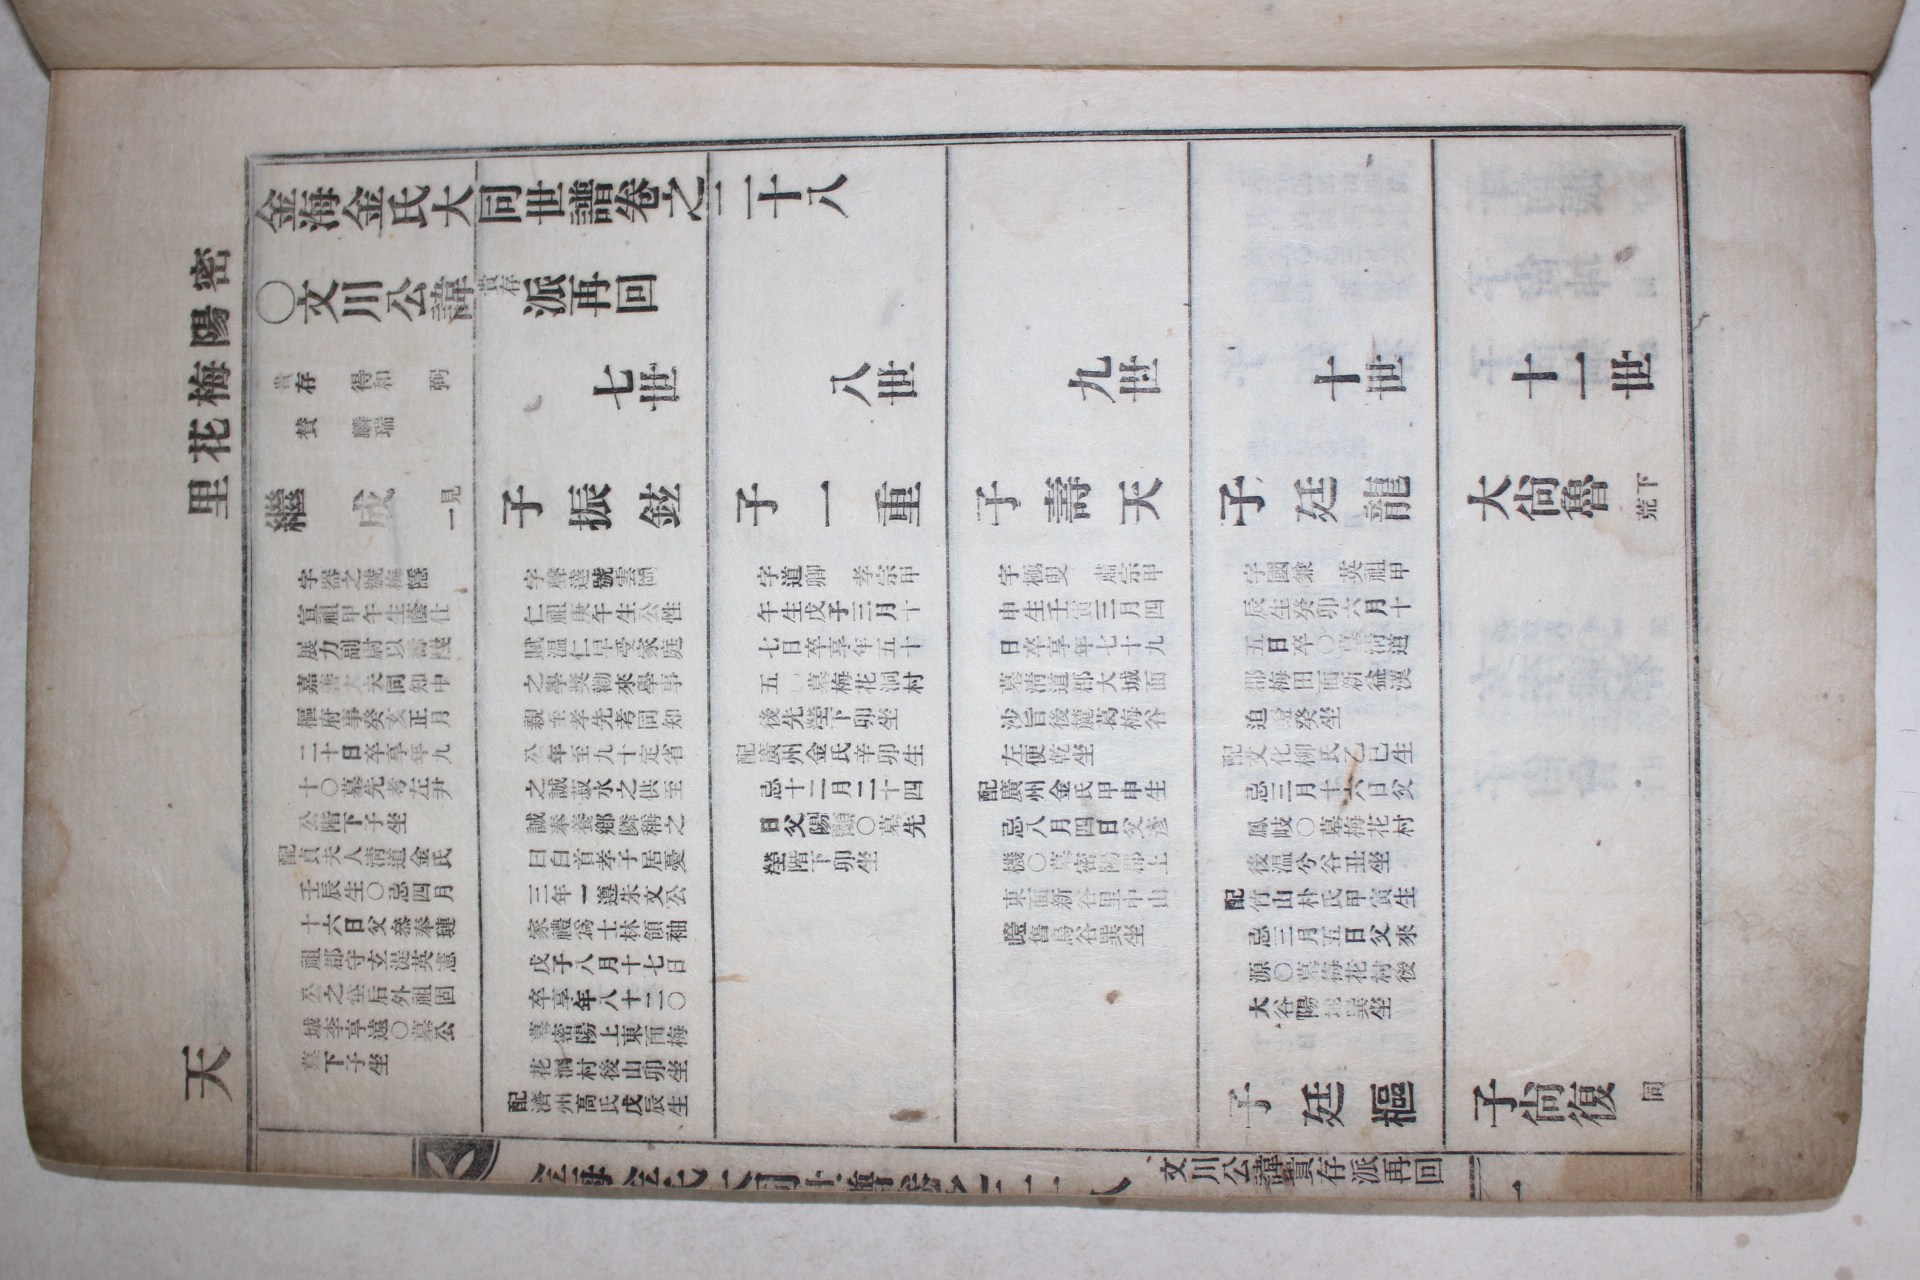 密陽梅花里
天
金海金氏大同世譜卷之二十八
〇文川公諱貴存派再回
貴存 得和 弼
贊 麟瑞
繼成
見一
字器之號梅隱
宣祖甲午生蔭仕
展力副尉以壽陞
嘉善大夫同知中
樞府事癸亥正月
二十日卒享年九
十〇墓先考左尹
公階下子坐
配貞夫人淸道金氏
壬辰生〇忌四月
十六日父叅奉璉
祖郡守玄湜英憲
公之后外祖固
城李享遠〇墓公
墓下子坐
七世
子振鉉
字聲達號雲
仁祖庚午生公性
賦溫仁早受家庭
之學奬勸來學事
親至孝先考同知
公年至九十定省
之誠菽水之供至
誠奉養鄕隣稱之
曰白首孝子居憂
三年一遵朱文公
家禮爲士林領袖
戊子八月十七日
卒享年八十二〇
墓密陽上東面梅
花洞村後山卯坐
配濟州高氏戊辰生
八世
子一重
字道卿 孝宗甲
午生戊子三月十
七日卒享年五十
五〇墓梅花洞村
後先塋下卯坐
配廣州金氏辛卯生
忌十二月二十四
日父陽顯〇墓先
塋階下卯坐
九世
子壽天
字極叟 肅宗甲
申生壬寅三月四
日卒享年七十九
墓淸道郡大城面
沙旨後麓葛梅谷
左便乾坐
配廣州金氏甲申生
忌八月四日父彥
機〇墓密陽郡上
東面新谷里中山
嶝舊鳥谷巽坐
十世
子廷龍
字國兼 英祖甲
辰生癸卯六月十
五日卒〇墓淸道
郡梅田面新益漢
迫嶝癸坐
配文化柳氏乙巳生
忌三月十六日父
鳳岐〇墓梅花村
後溫兮谷丑坐
配竹山朴氏甲寅生
忌三月五日父來
源〇墓梅花村後
大谷陽地巽坐
子廷樞
十一世
大尙魯
下荒
子尙復
同
金海金氏大同世譜卷之二十八
文川公諱貴存派再回
一